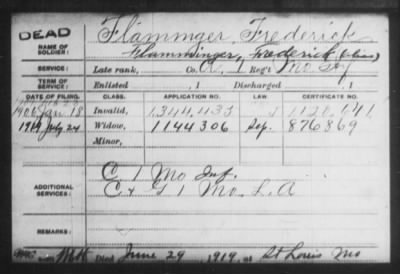 DEAD
Flammger, Frederick
NAME OF SOLDIER:
Flamminger, Frederick (alias)
SERVICE: Late rank, Co. C, 1 Reg't Mo Inf
TERM OF SERVICE: Enlisted , 1 Discharged , 1
DATE OF FILING. CLASS. APPLICATION NO. LAW CERTIFICATE NO.
Jan. 18 Invalid, 1,344,433 1120,141
1919 July 24 Widow, 1144306 Sep. 876869
Minor,
C 1 Mo Inf.
ADDITIONAL SERVICES: C & G 1 Mo. L. A
REMARKS:
Died June 29, 1919, at St Louis Mo